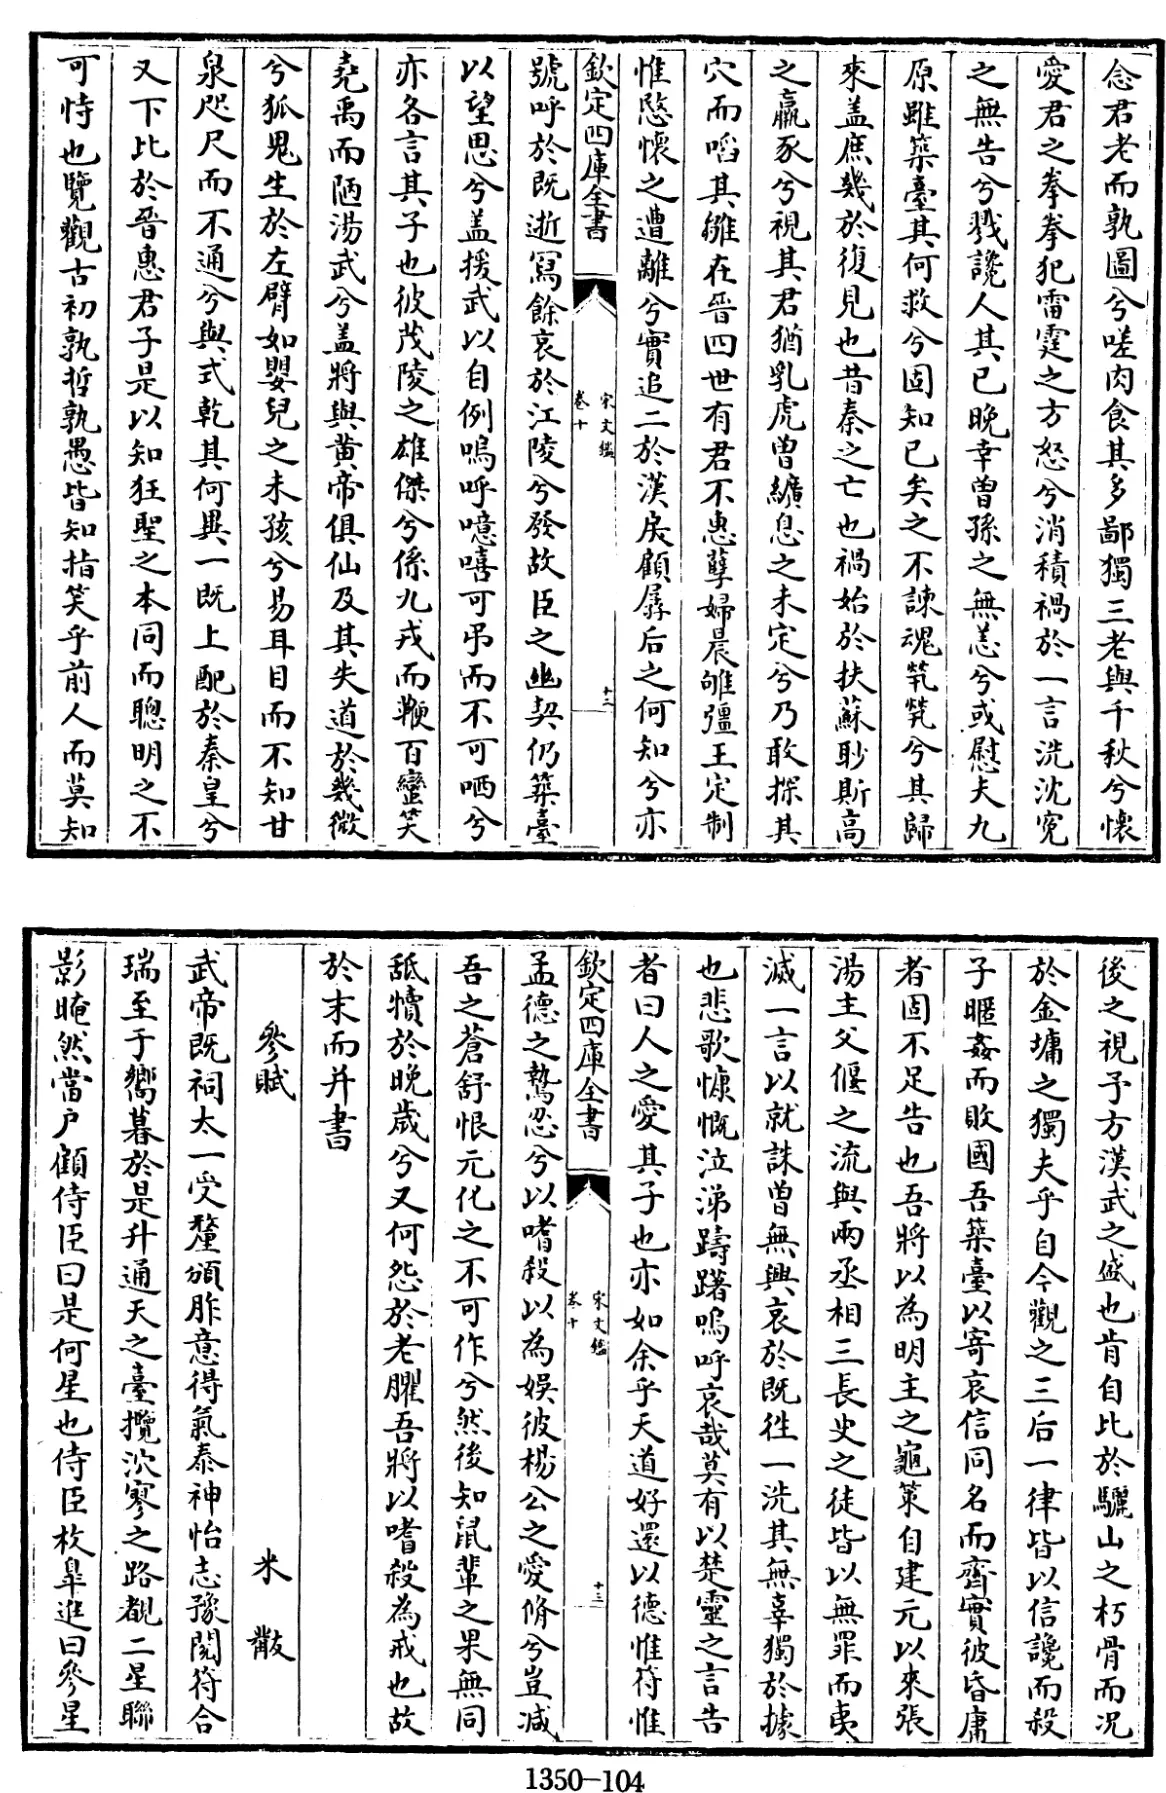 念君老而孰圖兮嗟肉食其多鄙獨三老與千秋兮懐
愛君之拳拳犯雷霆之方怒兮消積禍於一言洗沈寃
之無告兮戮讒人其已晩幸曽孫之無恙兮或慰夫九
原雖築臺其何救兮固知已矣之不諫魂煢煢兮其歸
來盖庶幾於復見也昔秦之亡也禍始於扶蘇眇斯高
之羸豕兮視其君猶乳虎曽纊息之未定兮乃敢探其
穴而啗其雛在晋四世有君不惠孽婦晨雊彊王定制
惟愍懷之遭離兮實追二於漢戾顧孱后之何知兮亦
欽定四庫全書
宋文鑑
卷十
十二
號呼於既逝冩餘哀於江陵兮發故臣之幽契仍築臺
以望思兮盖援武以自例嗚呼噫嘻可弔而不可哂兮
亦各言其子也彼茂陵之雄傑兮係九戎而鞭百蠻笑
堯禹而陋湯武兮盖將與黄帝俱仙及其失道於幾微
兮狐鬼生於左臂如嬰兒之未孩兮易耳目而不知甘
泉咫尺而不通兮與式乾其何異一既上配於秦皇兮
又下比於晋惠君子是以知狂聖之本同而聰明之不
可恃也覽觀古初孰哲孰愚皆知指笑乎前人而莫知
後之視予方漢武之盛也肯自比於驪山之朽骨而况
於金墉之獨夫乎自今觀之三后一律皆以信讒而殺
子暱姦而敗國吾築臺以寄哀信同名而齊實彼昏庸
者固不足告也吾將以為明主之龜䇿自建元以來張
湯主父偃之流與兩丞相三長史之徒皆以無罪而夷
滅一言以就誅曽無興哀於既徃一洗其無辜獨於據
也悲歌慷慨泣涕躊躇嗚呼哀哉莫有以楚靈之言告
者曰人之愛其子也亦如余乎天道好還以德惟符惟
欽定四庫全書
宋文鑑
卷十
十三
孟德之鷙忍兮以嗜殺以為娯彼楊公之愛脩兮豈减
吾之蒼舒恨元化之不可作兮然後知鼠輩之果無同
舐犢於晩歳兮又何怨於老臞吾將以嗜殺為戒也故
於末而并書
參賦　米　黻
武帝既祠太一受釐頒胙意得氣泰神怡志豫閱符合
瑞至于嚮暮於是升通天之臺攬泬寥之路覩二星聯
影晻然當户顧侍臣曰是何星也侍臣枚皐進曰參星
1350-104